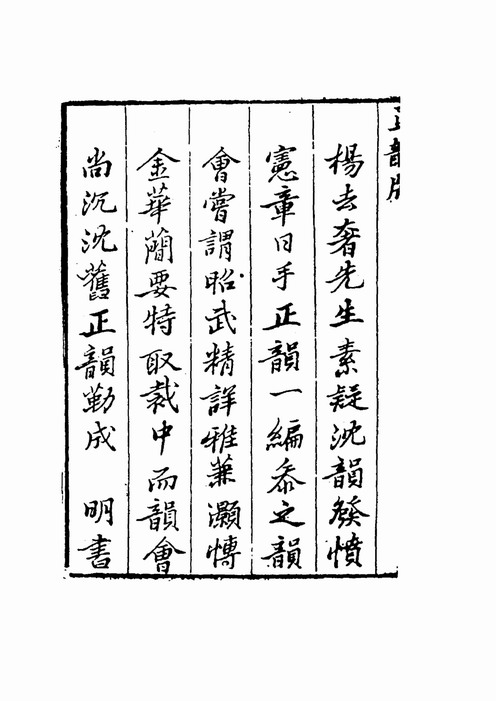 正韻
楊去奢先生素疑沈韻發憤
憲章日手正韻一編叅之韻
會嘗謂昭武精詳雅兼灝博
金華簡要特取裁中而韻會
尚沉沈舊正韻勒成　明書